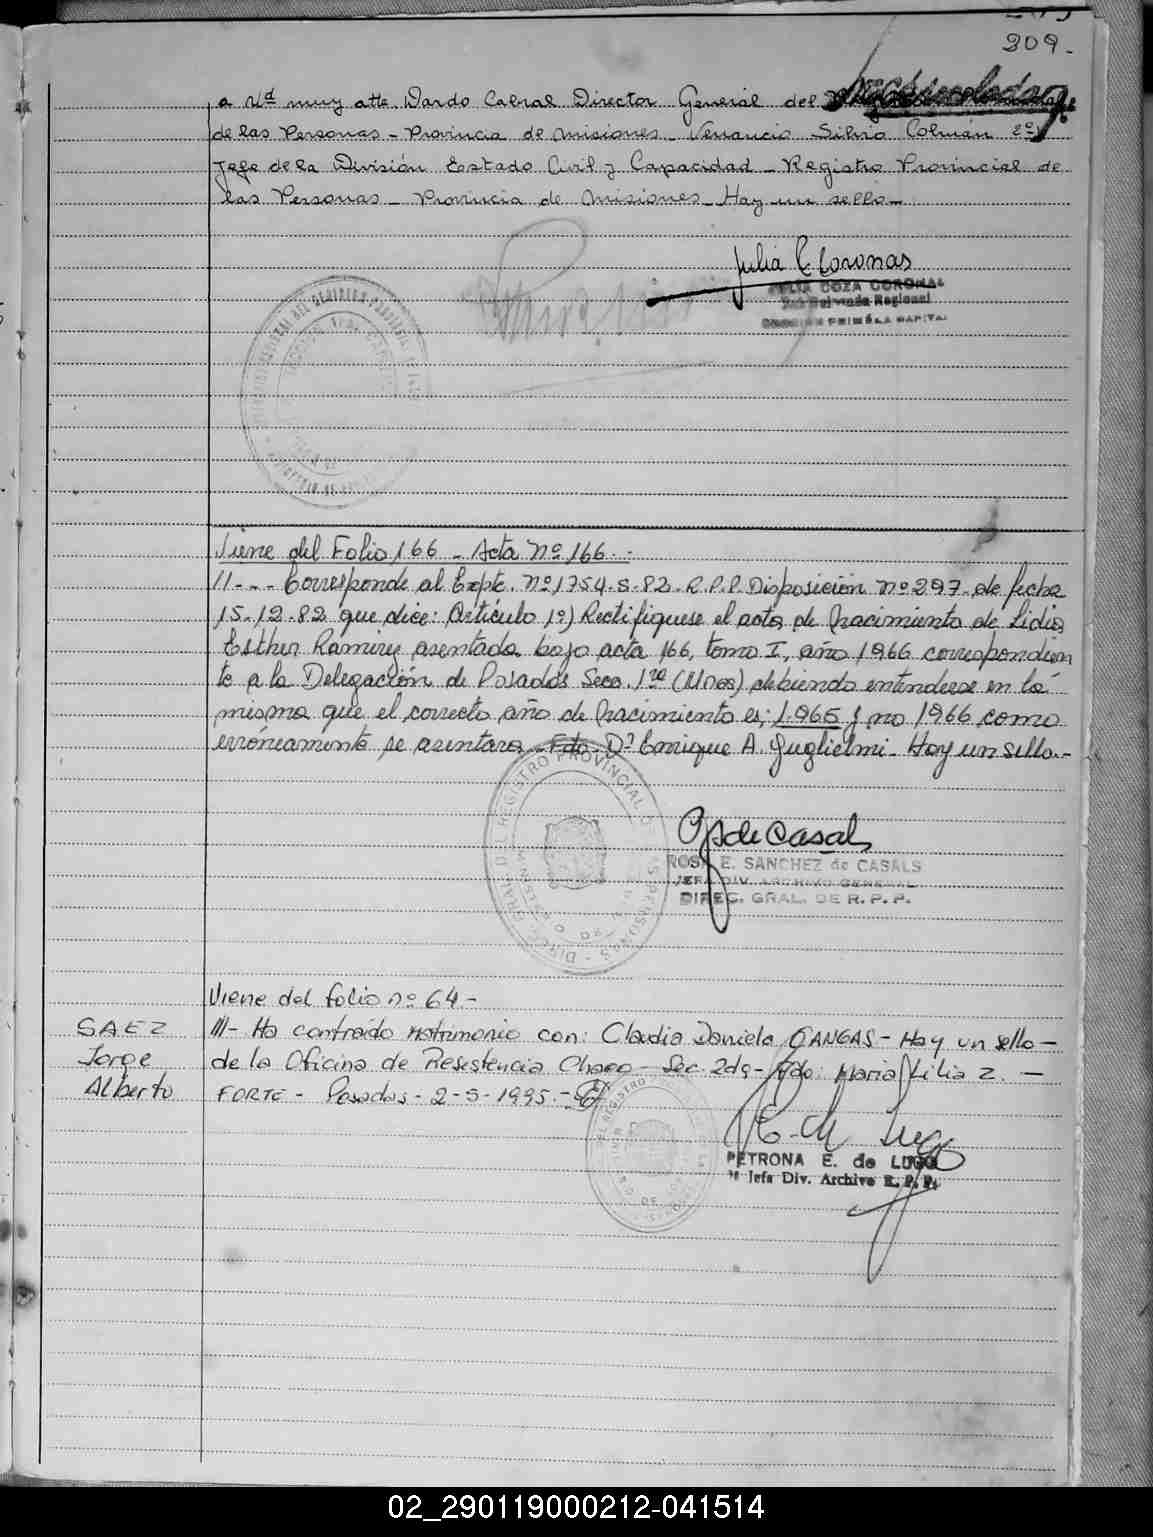 209.-
a Ud muy atte. Dardo Cabral Director General del
de las Personas - Provincia de Misiones - Venancio Silvio Colmán 2º
Jefe de la División Estado Civil y Capacidad - Registro Provincial de
las Personas - Provincia de Misiones - Hay un sello -
Julia C. Coronas
Viene del Folio 166 - Acta Nº 166. -
II - - - Corresponde al Expte. Nº 1754-S-82-R.P.P. Disposición Nº 297 de fecha
15-12-82 que dice: Artículo 1º) Rectifiquese el acta de Nacimiento de Lidia
Esther Ramirez asentada bajo acta 166, tomo I, año 1966 correspondien
te a la Delegación de Posadas Secc. 1ra (Unos) debiendo entenderse en la
misma que el correcto año de nacimiento es: 1.965 y no 1966 como
erróneamente se asentara - Fdo - Dr Enrique A. Guglielmi - Hay un sello. -
R de Casals
ROSA E. SANCHEZ de CASALS
JEFA DIV. ARCHIVO GENERAL
DIREC. GRAL. DE R. P. P.
Viene del folio nº 64 -
SAEZ
Jorge
Alberto
III - Ha contraído matrimonio con: Claudia Daniela GANGAS - Hay un sello -
de la Oficina de Resistencia Chaco - Sec. 2da - Fdo: Maria Lilia Z. -
FORTE - Posadas - 2-5-1995. -
PETRONA E. de LUGO
Jefa Div. Archivo R. P. P.
02_290119000212-041514